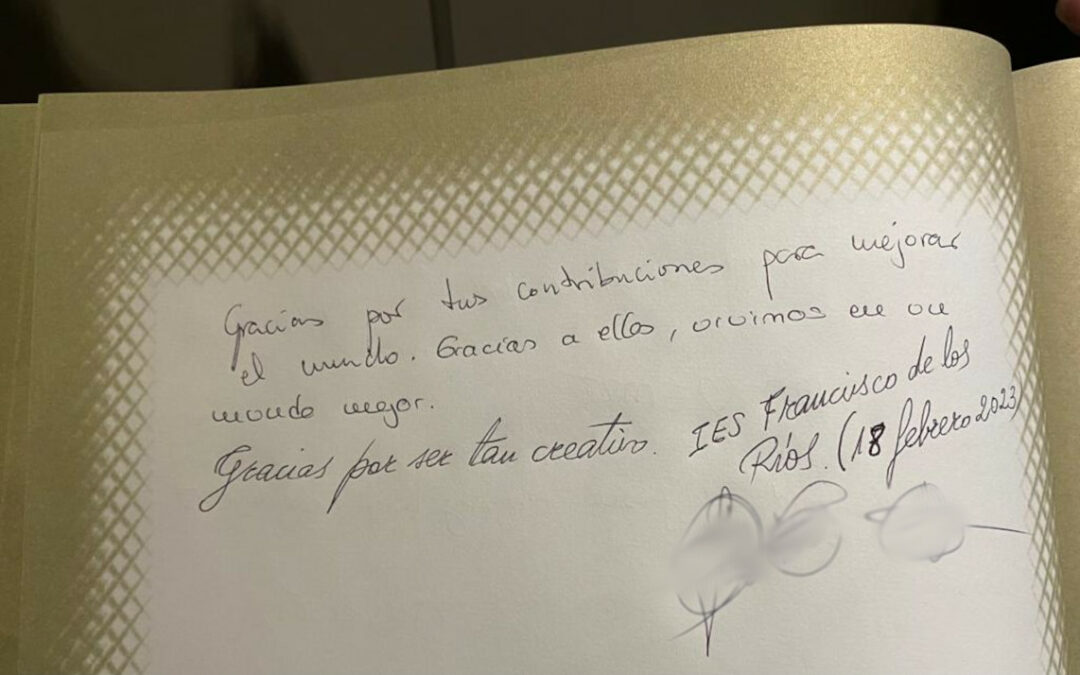 Gracias por tus contribuciones para mejorar
el mundo. Gracias a ellas, vivimos en un
mundo mejor.
Gracias por ser tan creativo. IES Francisco de los
Ríos. (18 febrero 2023)